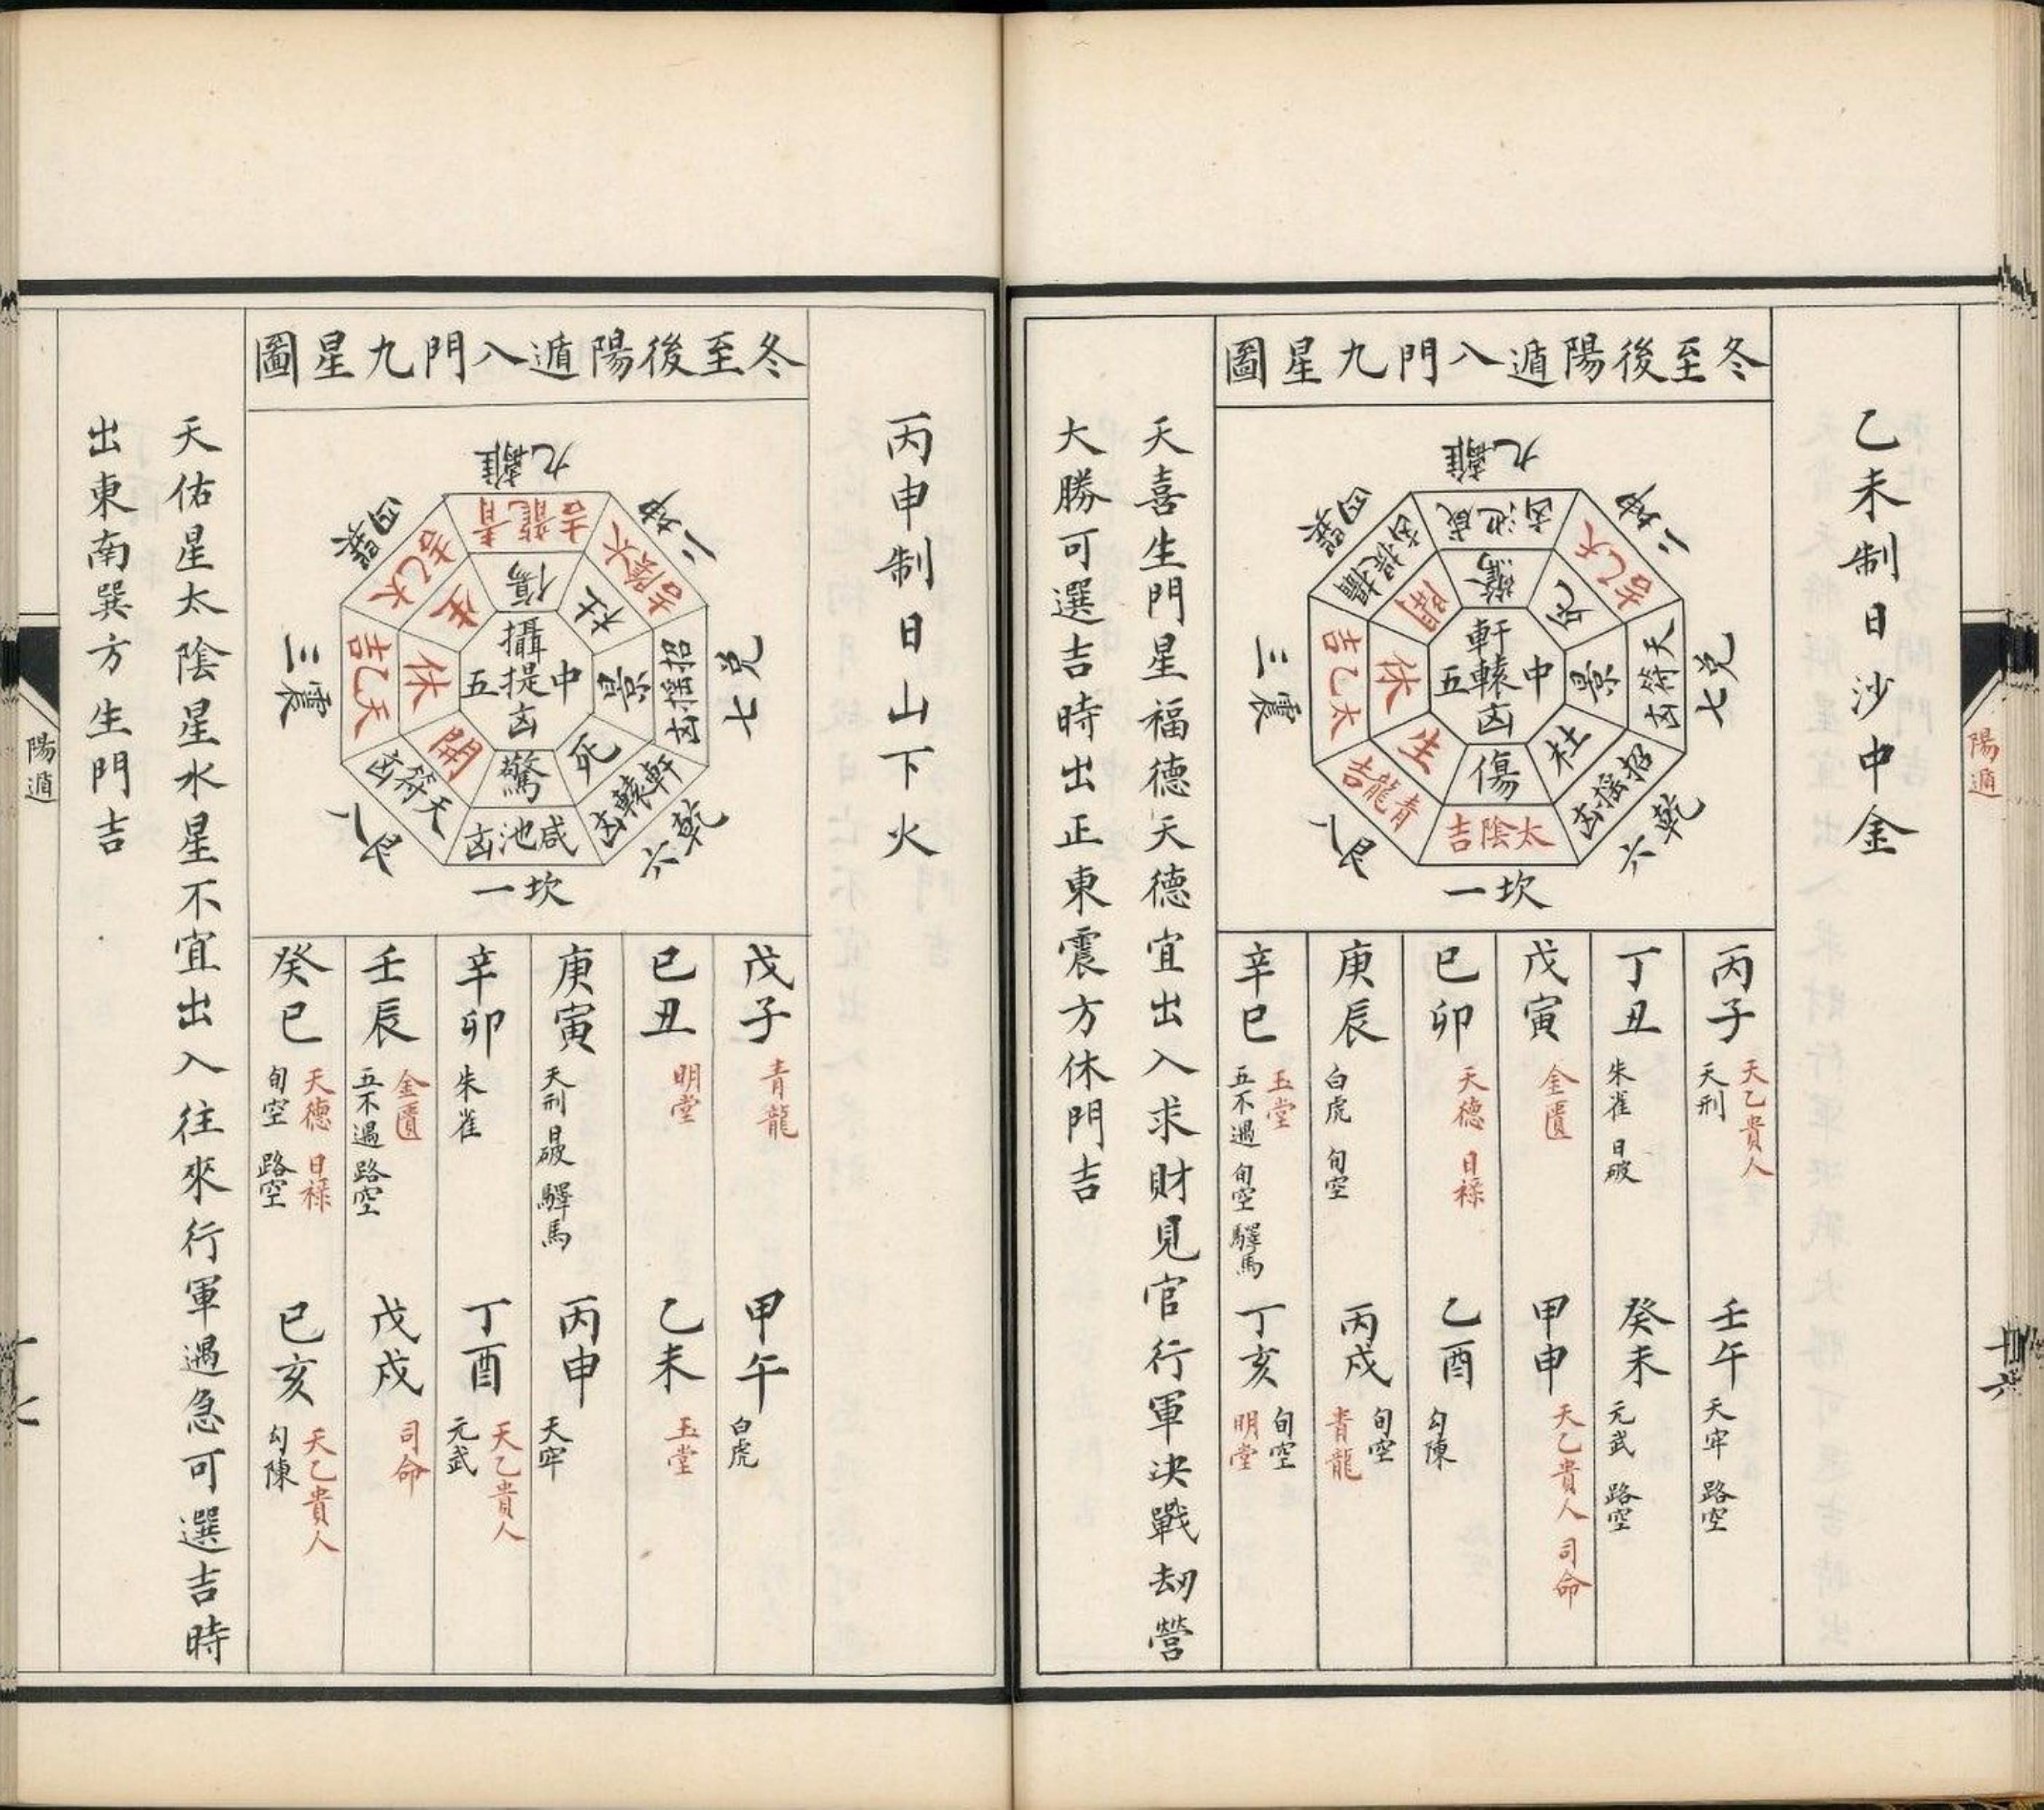 陽遁
乙未制日沙中金
冬至後陽遁八門九星圖
九離
二坤
七兌
六乾
一坎
八艮
三震
四巽
咸池凶
太乙吉
天符凶
招搖凶
太陰吉
青龍吉
太乙吉
攝提凶
驚
死
景
杜
傷
生
休
開
軒轅凶
中五
丙子 天乙貴人 天刑
壬午 天牢 路空
丁丑 朱雀 日破
癸未 元武 路空
戊寅 金匱
甲申 天乙貴人 司命
己卯 天德 日祿
乙酉 勾陳
庚辰 白虎 旬空
丙戌 旬空 青龍
辛巳 玉堂 五不遇 旬空 驛馬
丁亥 旬空 明堂
天喜生門星福德天德宜出入求財見官行軍決戰刼營
大勝可選吉時出正東震方休門吉
丙申制日山下火
冬至後陽遁八門九星圖
九離
二坤
七兌
六乾
一坎
八艮
三震
四巽
青龍吉
太陰吉
招搖凶
軒轅凶
咸池凶
天符凶
天乙吉
太乙吉
傷
杜
景
死
驚
開
休
生
攝提凶
中五
戊子 青龍
甲午 白虎
己丑 明堂
乙未 玉堂
庚寅 天刑 日破 驛馬
丙申 天牢
辛卯 朱雀
丁酉 天乙貴人 元武
壬辰 金匱 五不遇 路空
戊戌 司命
癸巳 天德 日祿 旬空 路空
己亥 天乙貴人 勾陳
天佑星太陰星水星不宜出入往來行軍遇急可選吉時
出東南巽方生門吉
陽遁